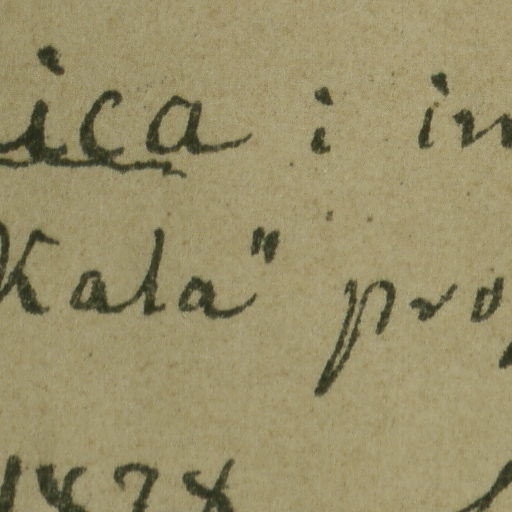 ica : in
Kala" pro
1878